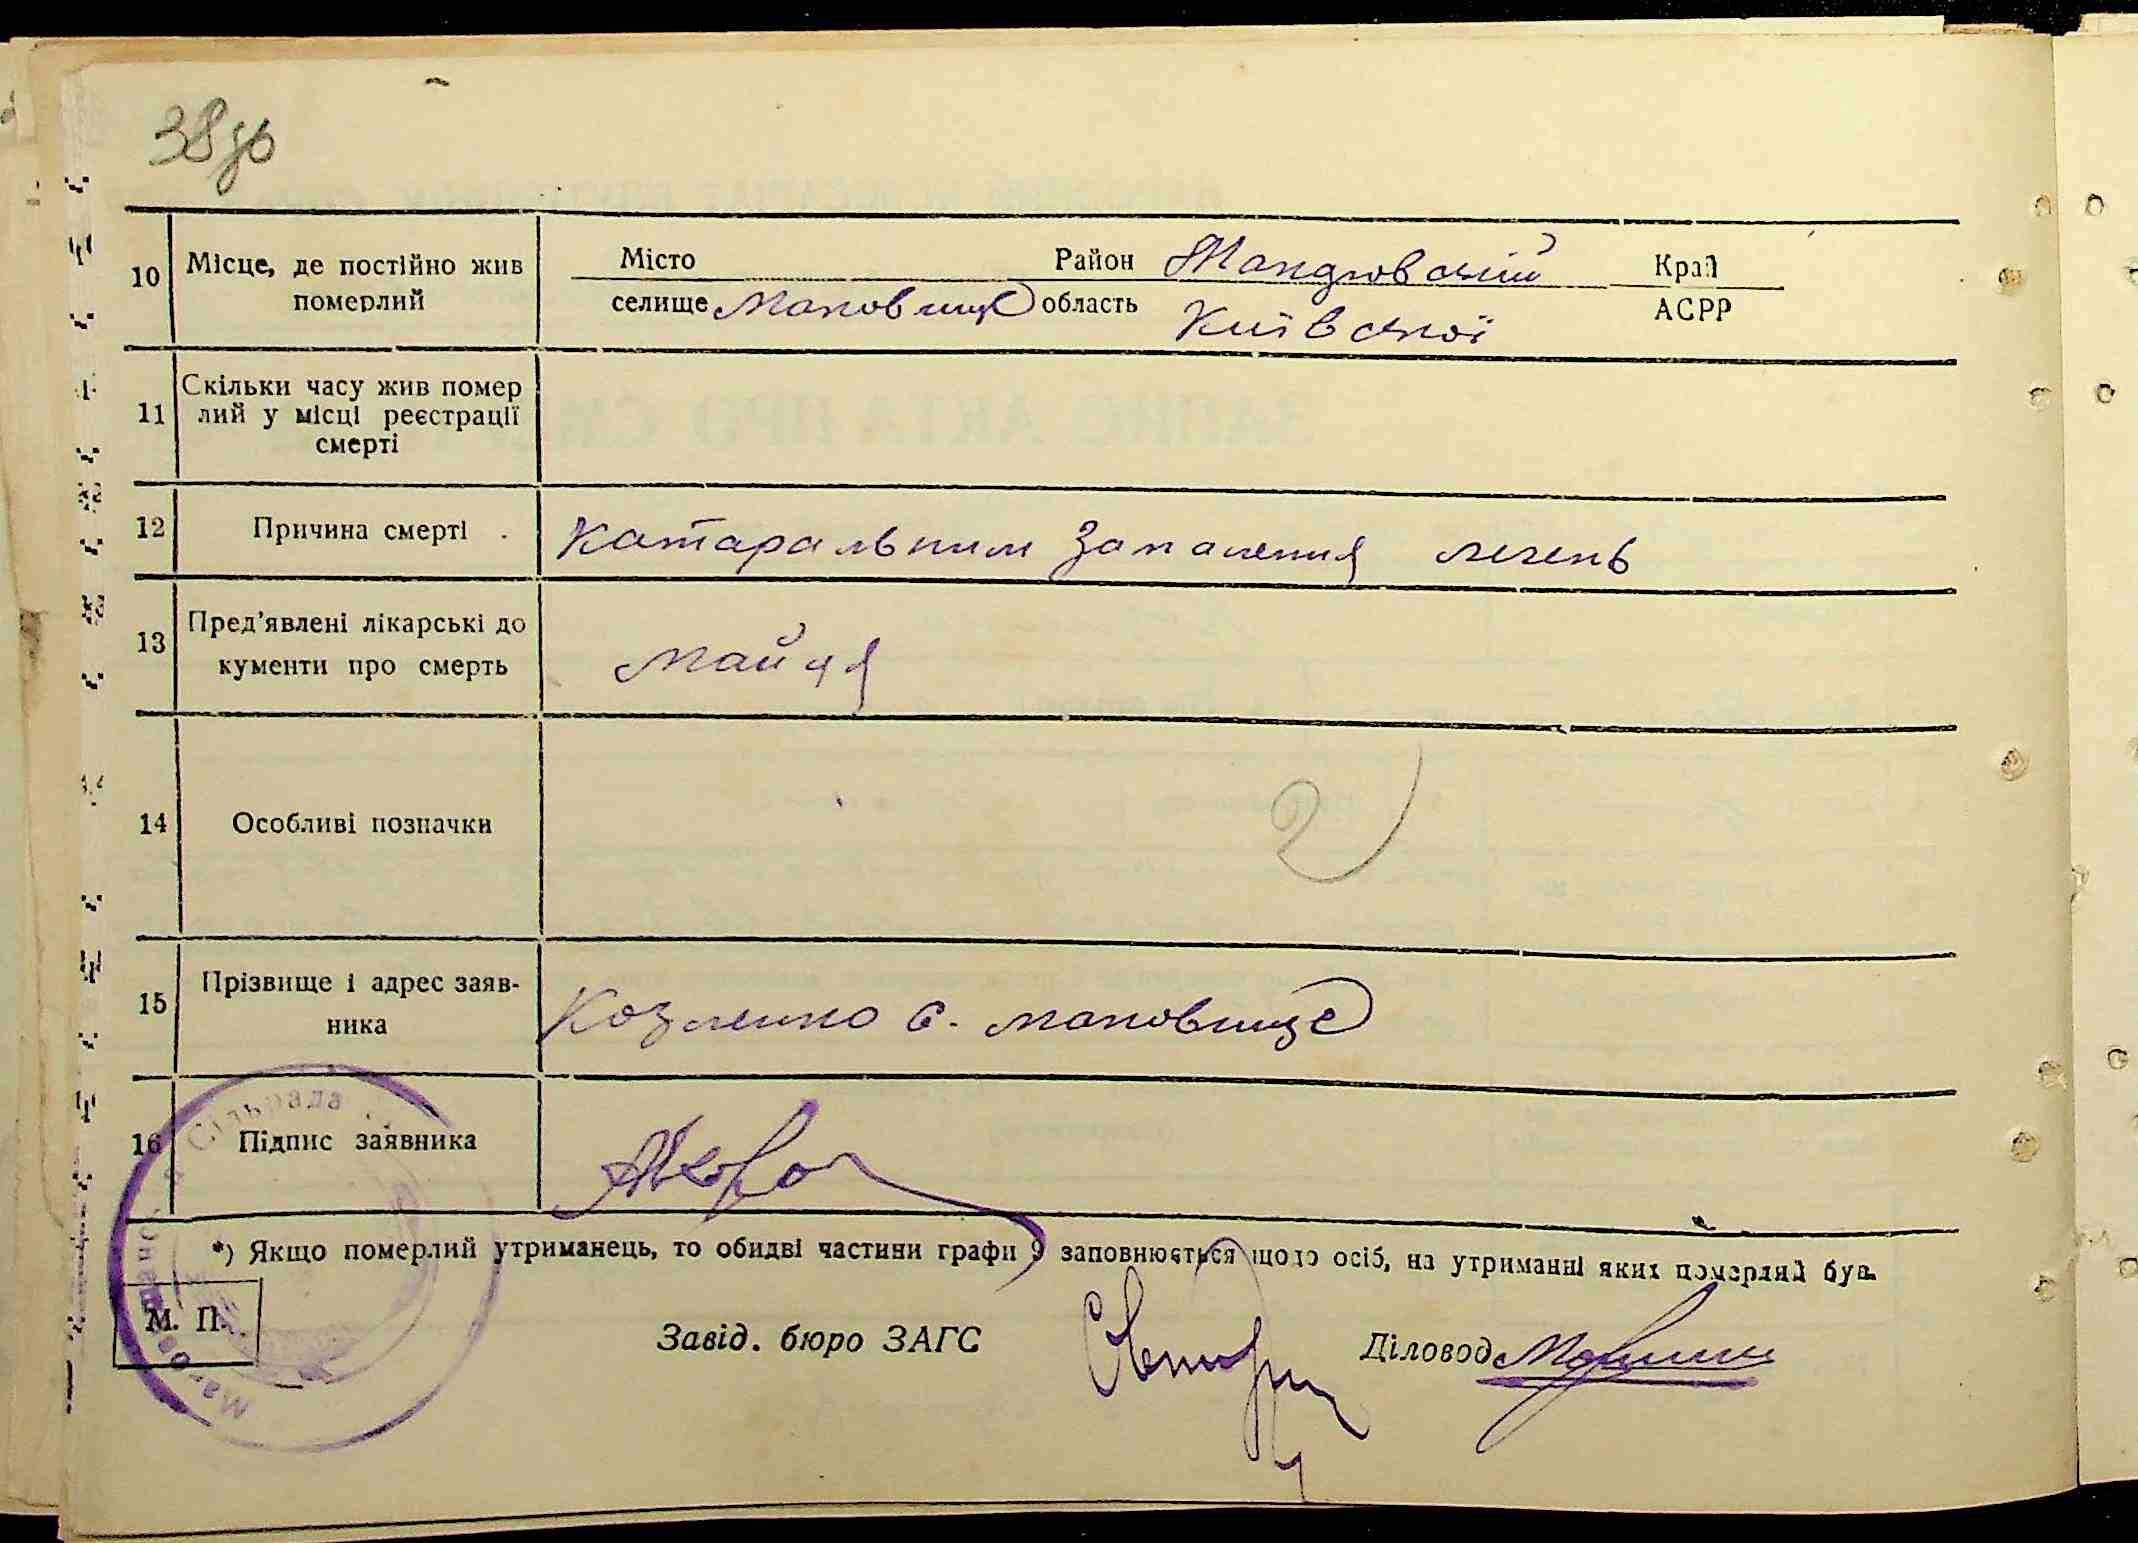 38зв
10 Місце, де постійно жив померлий
Місто Район Макарівський Край
селище Маковище область Київської АСРР
11 Скільки часу жив помер
лий у місці реєстрації
смерті
12 Причина смерті Катаральним Запаления легень
13 Пред'явлені лікарські до
кументи про смерть
14 Особливі позначки
2
15 Прізвище і адрес заяв-
ника
Козленко с. Маковище
16 Підпис заявника
*) Якщо померлий утриманець, то обидві частини графи 9 заповнюється щодо осіб, на утриманні яких померлий був.
М. П.
Завід. бюро ЗАГС Діловод
Сільрада